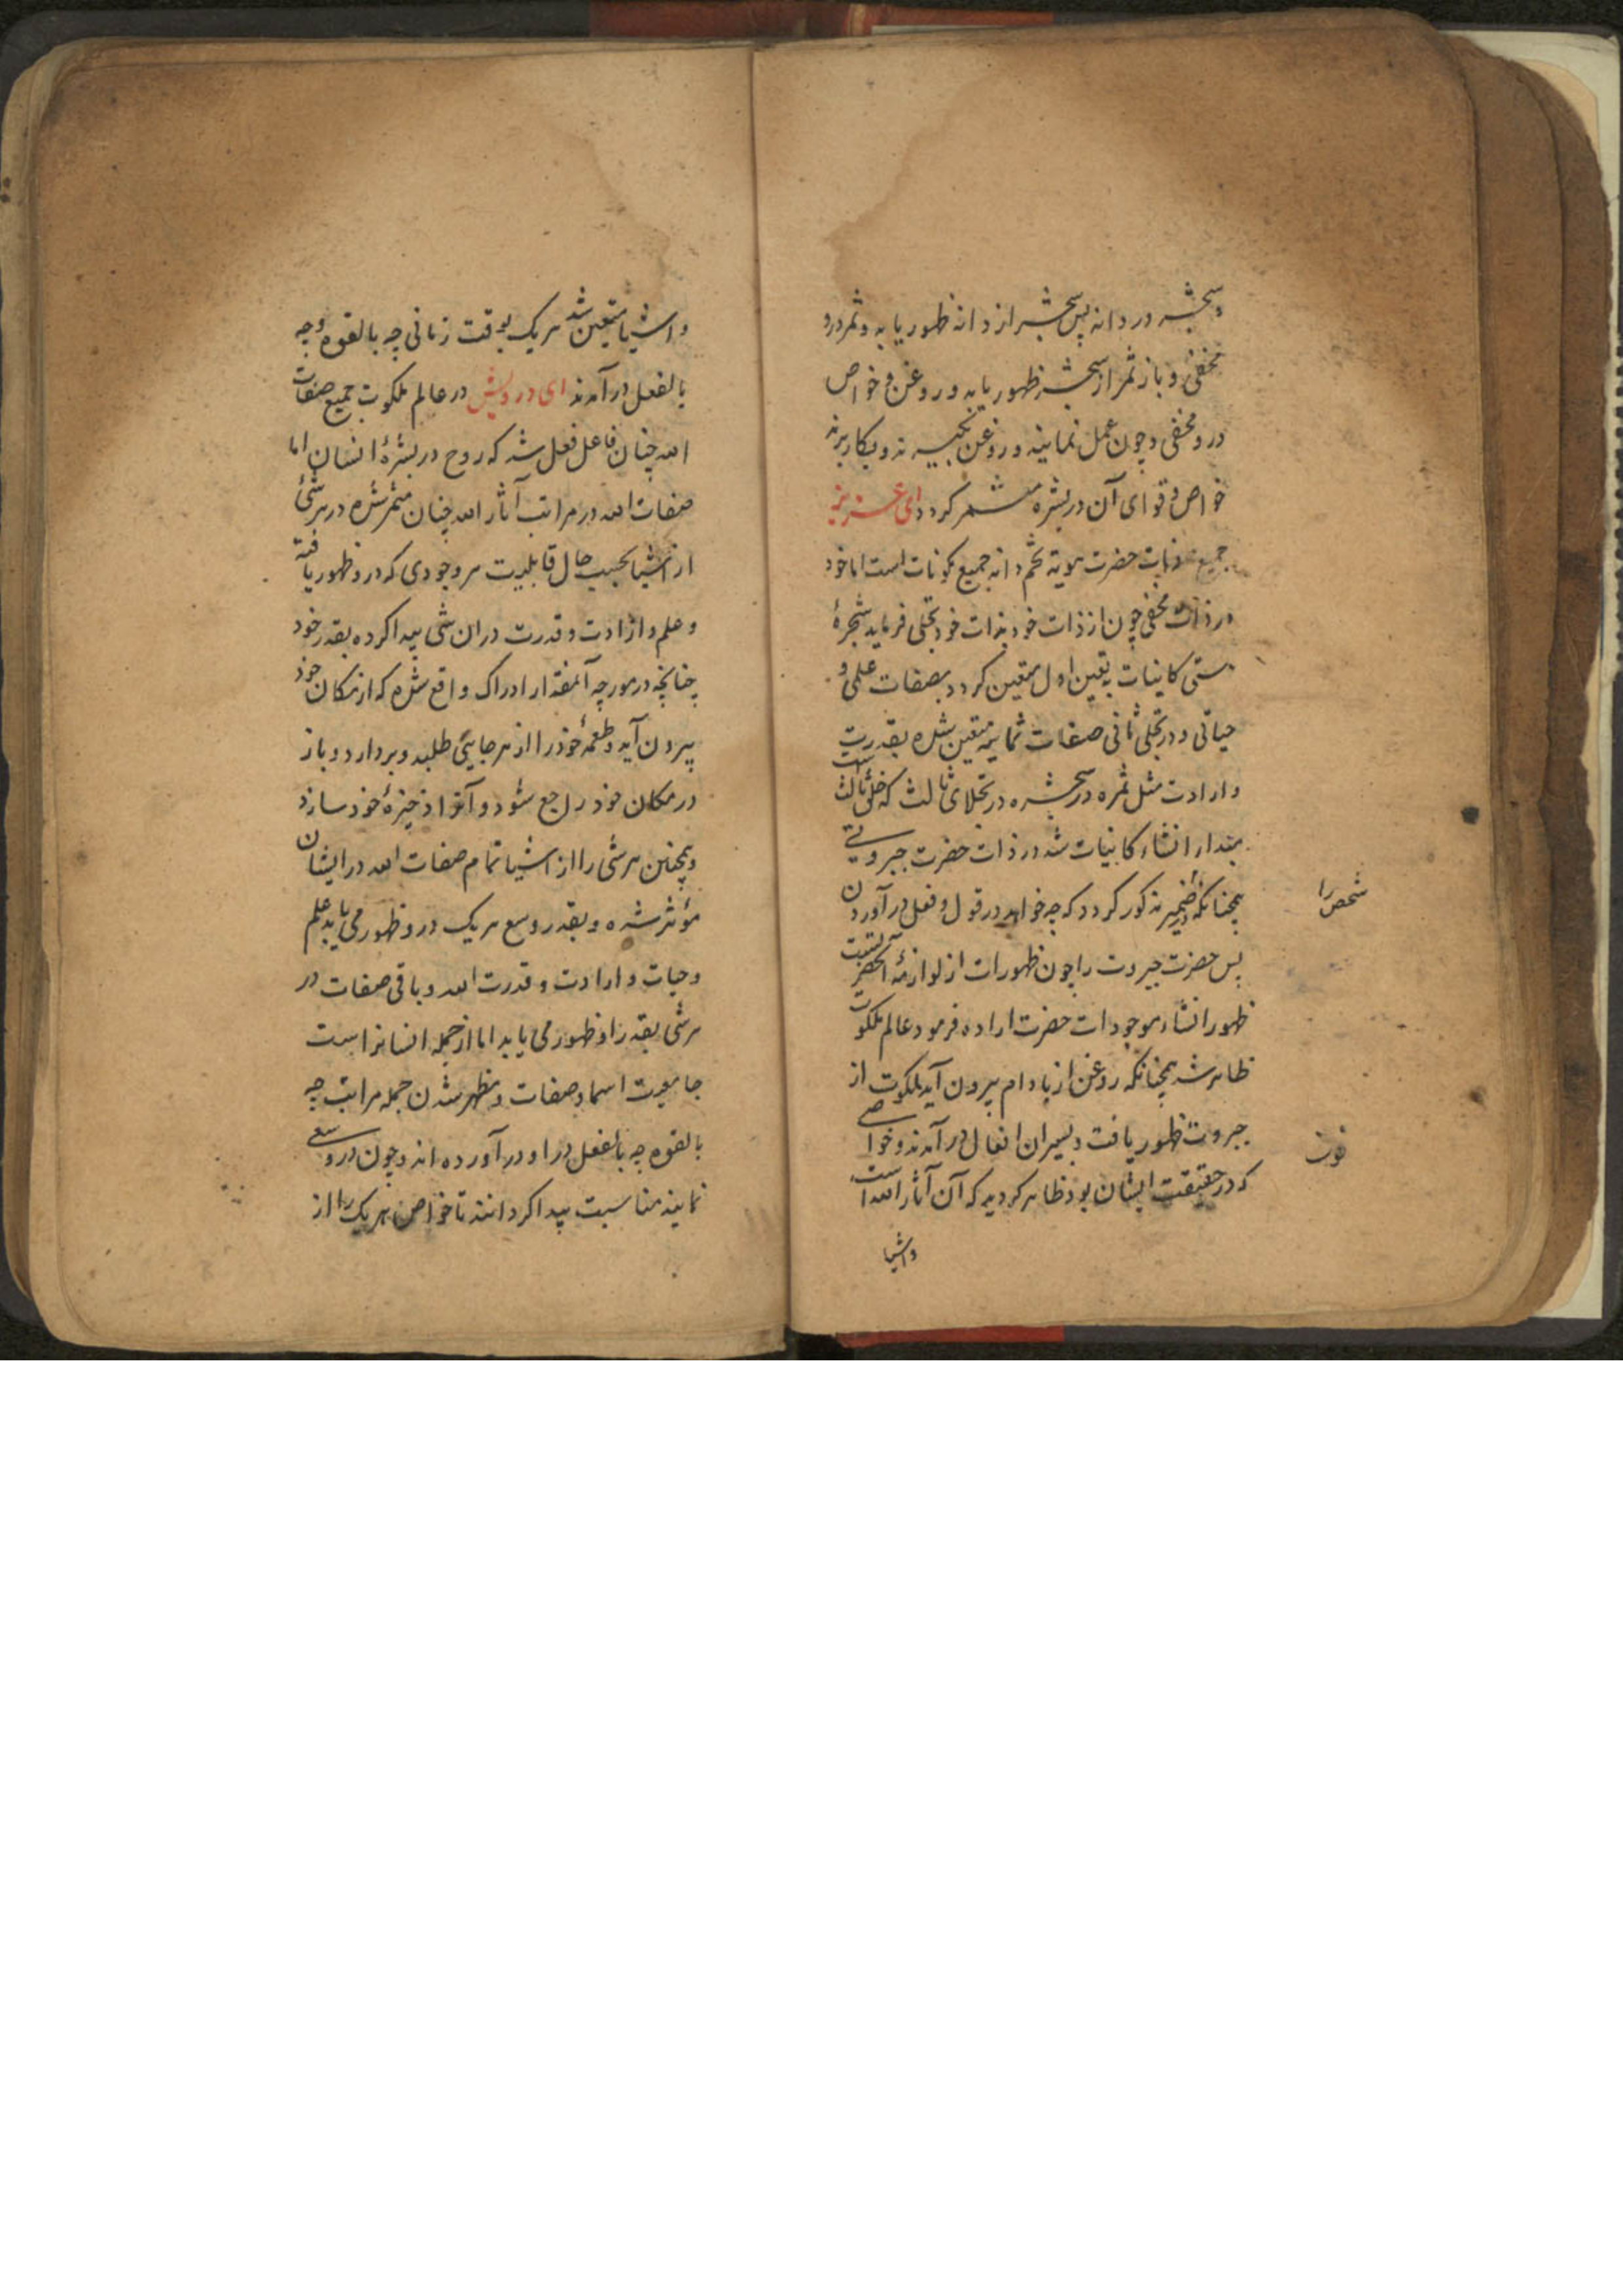 وشجره در دانه پس شجر از دانه ظهور یابد و ثمر درو
مخفی و باز ثمر از شجره ظهور یابد و روغن و خواص
درو مخفی و چون عمل نمایند و روغن بکار برند
خواص و قوای آن در بشره مثمر کردد ای عزیز
جمیع حضرت هویة تخم و دانه جمیع مکونات است اما خود
در ذات مخفی چون از ذات خود بذات خود تجلی فرماید شجرهٔ
هستی کاینات بتعین اول متعین کردد بصفات علمی و
حیاتی و در تجلی ثانی صفات ثمانیه متعین شده بقدرت
و ارادت مثل ثمره در شجره در تجلای ثالث که ثالث است
بمقدار انشاء کاینات شد در ذات حضرت جبروتی
همچنانکه در ضمیر مذکور کردد که چه خواهد در قول و فعل در آوردن
شخص را
پس حضرت جبروت را چون ظهورات از لوازمهٔ آنحضرتست
ظهور انشاء موجودات حضرت اراده فرمود عالم ملکوت
ظاهر شد همچنانکه روغن از بادام بیرون آید ملکوت از
جبروت ظهور یافت و بمیزان افعال در آمدند و خواصی
که در حقیقت ایشان بود ظاهر کردید که آن آثار الله است
واشیا
واشیا متعین شد هر یک بوقت زمانی چه بالقوه و چه
بالفعل در آمدند ای درویش در عالم ملکوت جمیع صفات
الله چنان فاعل فعل شد که روح در بشرهٔ انسان اما
صفات الله در مراتب آثار الله چنان مثمر شده در هر شئ
از اشیا بحسب حال قابلیت هر وجودی که درو ظهور یافته
و علم و ارادت و قدرت در ان شی پیدا کرده بقدر خود
چنانچه در مورچه آنمقدار ادراک واقع شده که از مکان خود
بیرون آید و طعمهٔ خود را از هر جایی طلبد و بردارد و باز
در مکان خود راجع شود و آنرا ذخیرهٔ خود سازد
و همچنین هر شی را از اشیا تمام صفات الله در ایشان
مؤثر شده و بقدر وسع هر یک درو ظهور می یابد علم
و حیات و ارادت و قدرت الله و باقی صفات در
هر شی بقدر او ظهور می یابد اما از جمله انسانراست
جامعیت اسما و صفات و مظهر شدن جمله مراتب چه
بالقوه چه بالفعل در او در آورده اند و چون درو سعی
نمایند مناسبت پیدا کردانند تا خواص هر یک را از